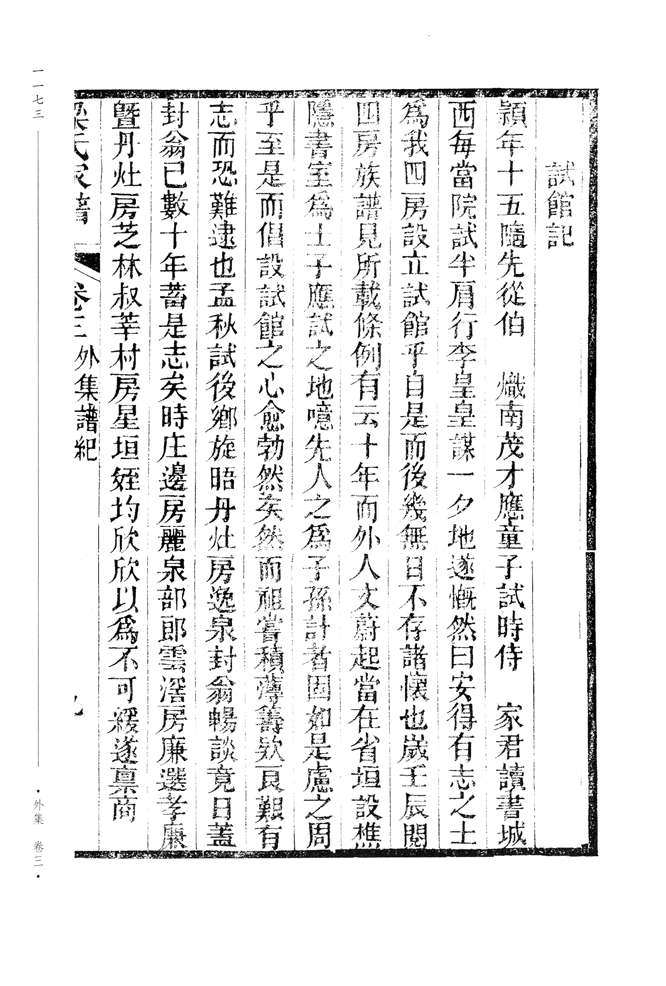 試館記
穎年十五隨先從伯　熾南茂才應童子試時侍　家君讀書城
西每當院試半肩行李皇皇謀一夕地遂慨然曰安得有志之士
為我四房設立試館乎自是而後幾無日不存諸懷也歲壬辰閱
四房族譜見所載條例有云十年而外人文蔚起當在省垣設樵
隱書室為士子應試之地噫先人之為子孫計者固如是慮之周
乎至是而倡設試館之心愈勃然矣然而祖嘗積薄籌欵良艱有
志而恐難逮也孟秋試後鄉旋晤丹灶房逸泉封翁暢談竟日蓋
封翁已數十年蓄是志矣時庄邊房麗泉部郎雲滘房廉選孝廉
暨丹灶房芝林叔莘村房星垣姪均欣欣以為不可緩遂稟商
梁氏家譜
卷三 外集譜紀
九
一一七三
·外集 卷三·